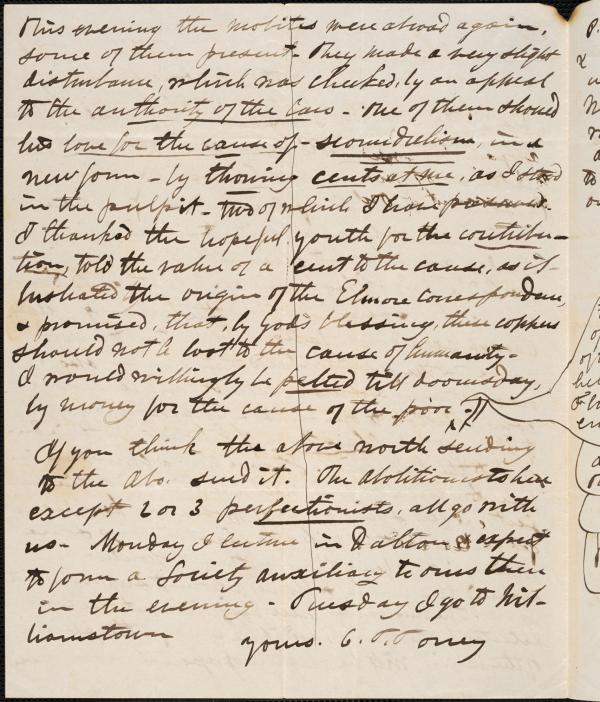 This evening the mobites were abroad again,
some of them present. They made a very slight
disturbance, which was checked, by an appeal
to the authority of the laws - One of them showed
his love for the cause of - scoundrelism, in a
new form - by throwing cents at me, as I stood
in the pulpit - two of which I have preserved.
I thanked the hopeful youth for the contribu-
tion, told the value of a cent to the cause, as il-
lustrated the origin of the Elmore correspondence,
& promised, that, by God's blessing, these coppers
should not be lost to the cause of humanity -
I would willingly be pelted till doomsday,
by money for the cause of the poor.
If you think the above worth sending
to the Abo. send it. The abolitionists here
except 2 or 3 perfectionists, all go with
us - Monday I lecture in Dalton & expect
to form a Society auxiliary to ours then
in the evening - Tuesday I go to Wil-
liamstown
yours. C. T. Torrey